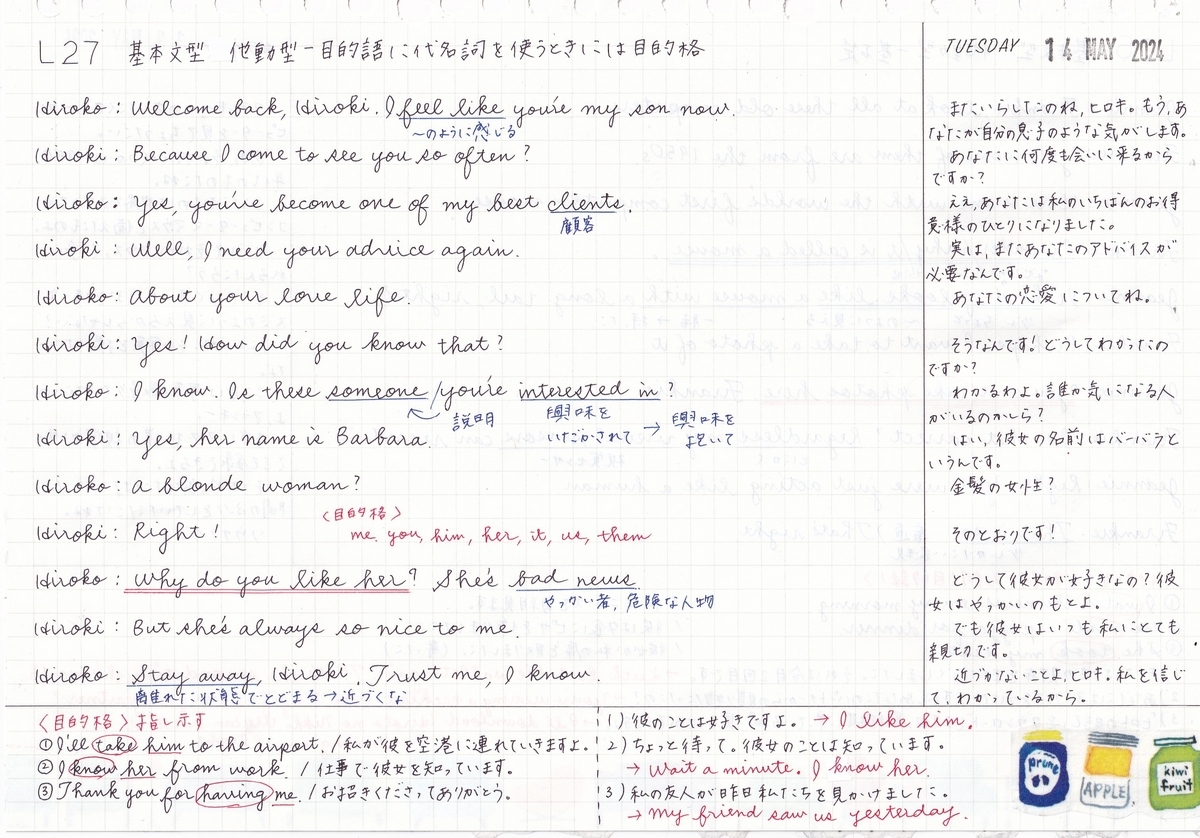 L27 基本文型 他動型-目的語に代名詞を使うときには目的格
TUESDAY 14 MAY 2024
Hiroko: Welcome back, Hiroki. I feel like you're my son now.
〜のように感じる
Hiroki: Because I come to see you so often?
Hiroko: Yes, you've become one of my best clients.
顧客
Hiroki: Well, I need your advice again.
Hiroko: About your love life.
Hiroki: Yes! How did you know that?
Hiroko: I know. Is there someone / you're interested in?
説明
興味を
いだかされて → 興味を
抱いて
Hiroki: Yes, her name is Barbara.
Hiroko: A blonde woman?
Hiroki: Right!
〈目的格〉
me. you, him, her, it, us, them
Hiroko: Why do you like her? She's bad news.
やっかい者, 危険な人物
Hiroki: But she's always so nice to me.
Hiroko: Stay away, Hiroki. Trust me, I know.
離れた状態でとどまる→近づくな
またいらしたのね, ヒロキ。もう, あ
なたが自分の息子のような気がします。
あなたに何度も会いに来るから
ですか?
ええ, あなたは私のいちばんのお得
意様のひとりになりました。
実は, またあなたのアドバイスが
必要なんです。
あなたの恋愛についてね。
そうなんです! どうしてわかったの
ですか?
わかるわよ。誰か気になる人
がいるのかしら?
はい, 彼女の名前はバーバラと
いうんです。
金髪の女性?
そのとおりです!
どうして彼女が好きなの? 彼
女はやっかいのもとよ。
でも彼女はいつも私にとても
親切です。
近づかないことよ, ヒロキ。私を信じ
て, わかっているから。
〈目的格〉指し示す
①I'll take him to the airport. / 私が彼を空港に連れていきますよ。
②I know her from work. / 仕事で彼女を知っています。
③Thank you for having me. / お招きくださってありがとう。
1) 彼のことは好きですよ。 → I like him.
2) ちょっと待って。彼女のことは知っています。
→ Wait a minute. I know her.
3) 私の友人が昨日私たちを見かけました。
→ My friend saw us yesterday.
prune
APPLE
kiwi
fruit